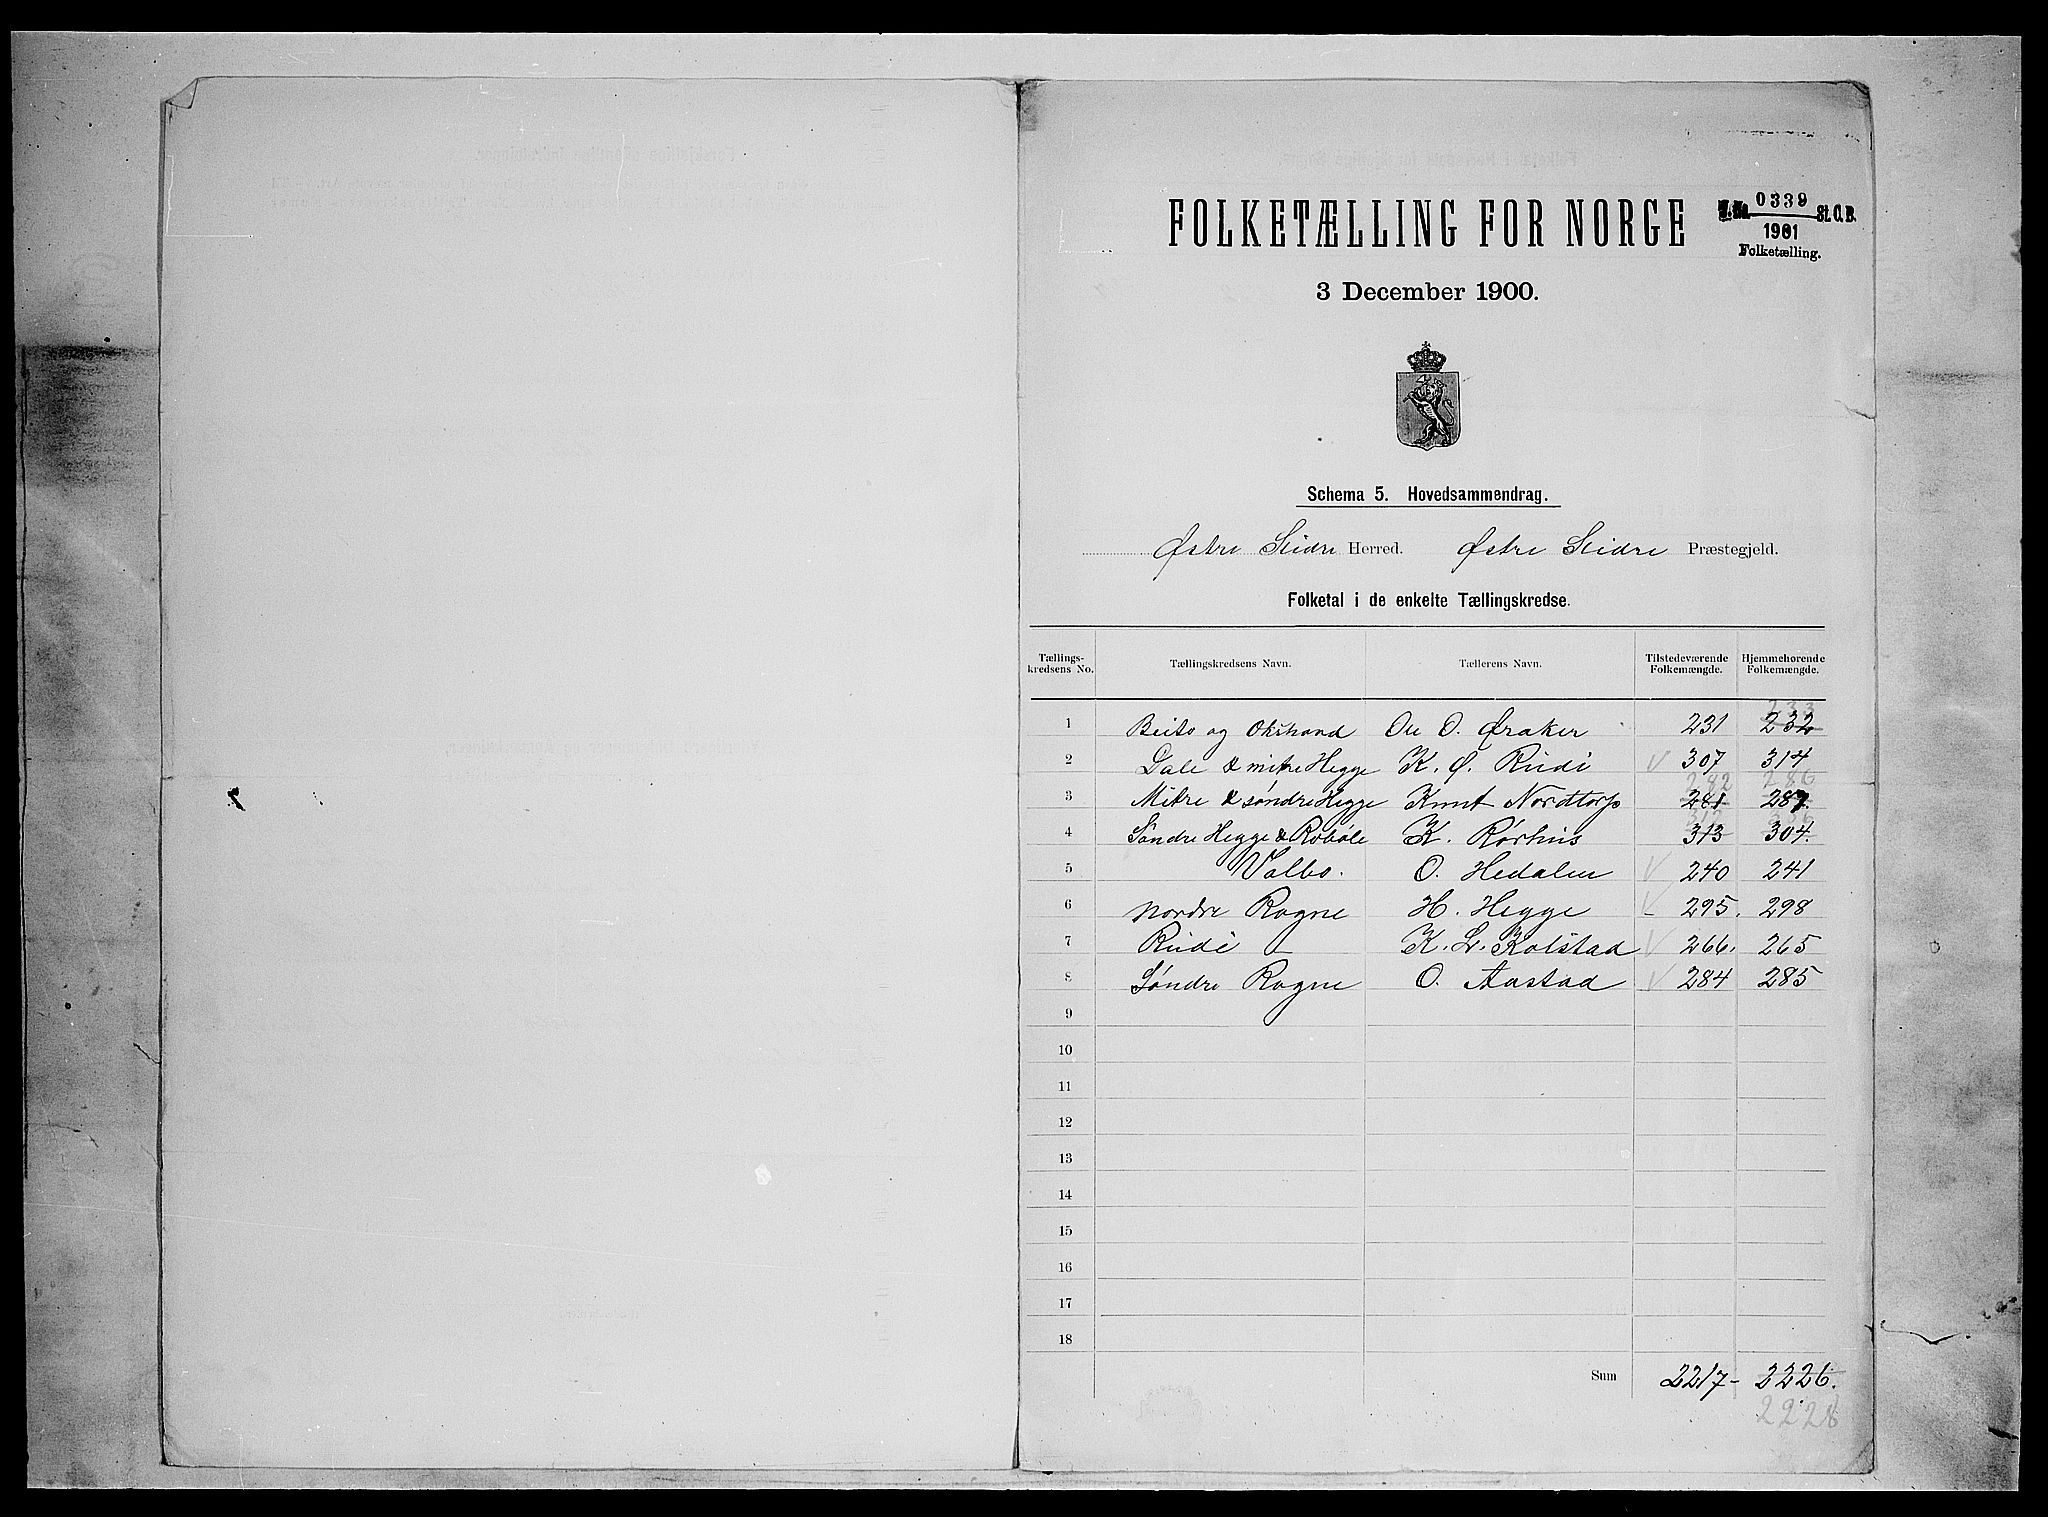 FOLKETÆLLING FOR NORGE
J. No. 0339 St. C. B.
1901
Folketælling.
3 December 1900.
Schema 5. Hovedsammendrag.
Østre Slidre Herred. Østre Slidre Præstegjeld.
Folketal i de enkelte Tællingskredse.
Tællings-kredsens No. Tællingskredsens Navn. Tællerens Navn. Tilstedeværende Folkemængde. Hjemmehørende Folkemængde.
233
1 Beito og Okshovd Ole O. Øraker 231 232
2 Dale & mitre Hegge K. Ø. Rudi 307 314
282 286
3 Mitre & søndre Hegge Knut Nordtorp 281 287
312 306
4 Søndre Hegge & Robøle K. Rørhus 313 304.
5 Volbo. O. Hedalen 240 241
6 Nordre Rogne H. Hegge 295. 298
7 Rudi - K. L. Kolstad 266. 265
8 Søndre Rogne O. Aastad 284 285
9
10
11
12
13
14
15
16
17
18
Sum 2217 - 2226.
2228